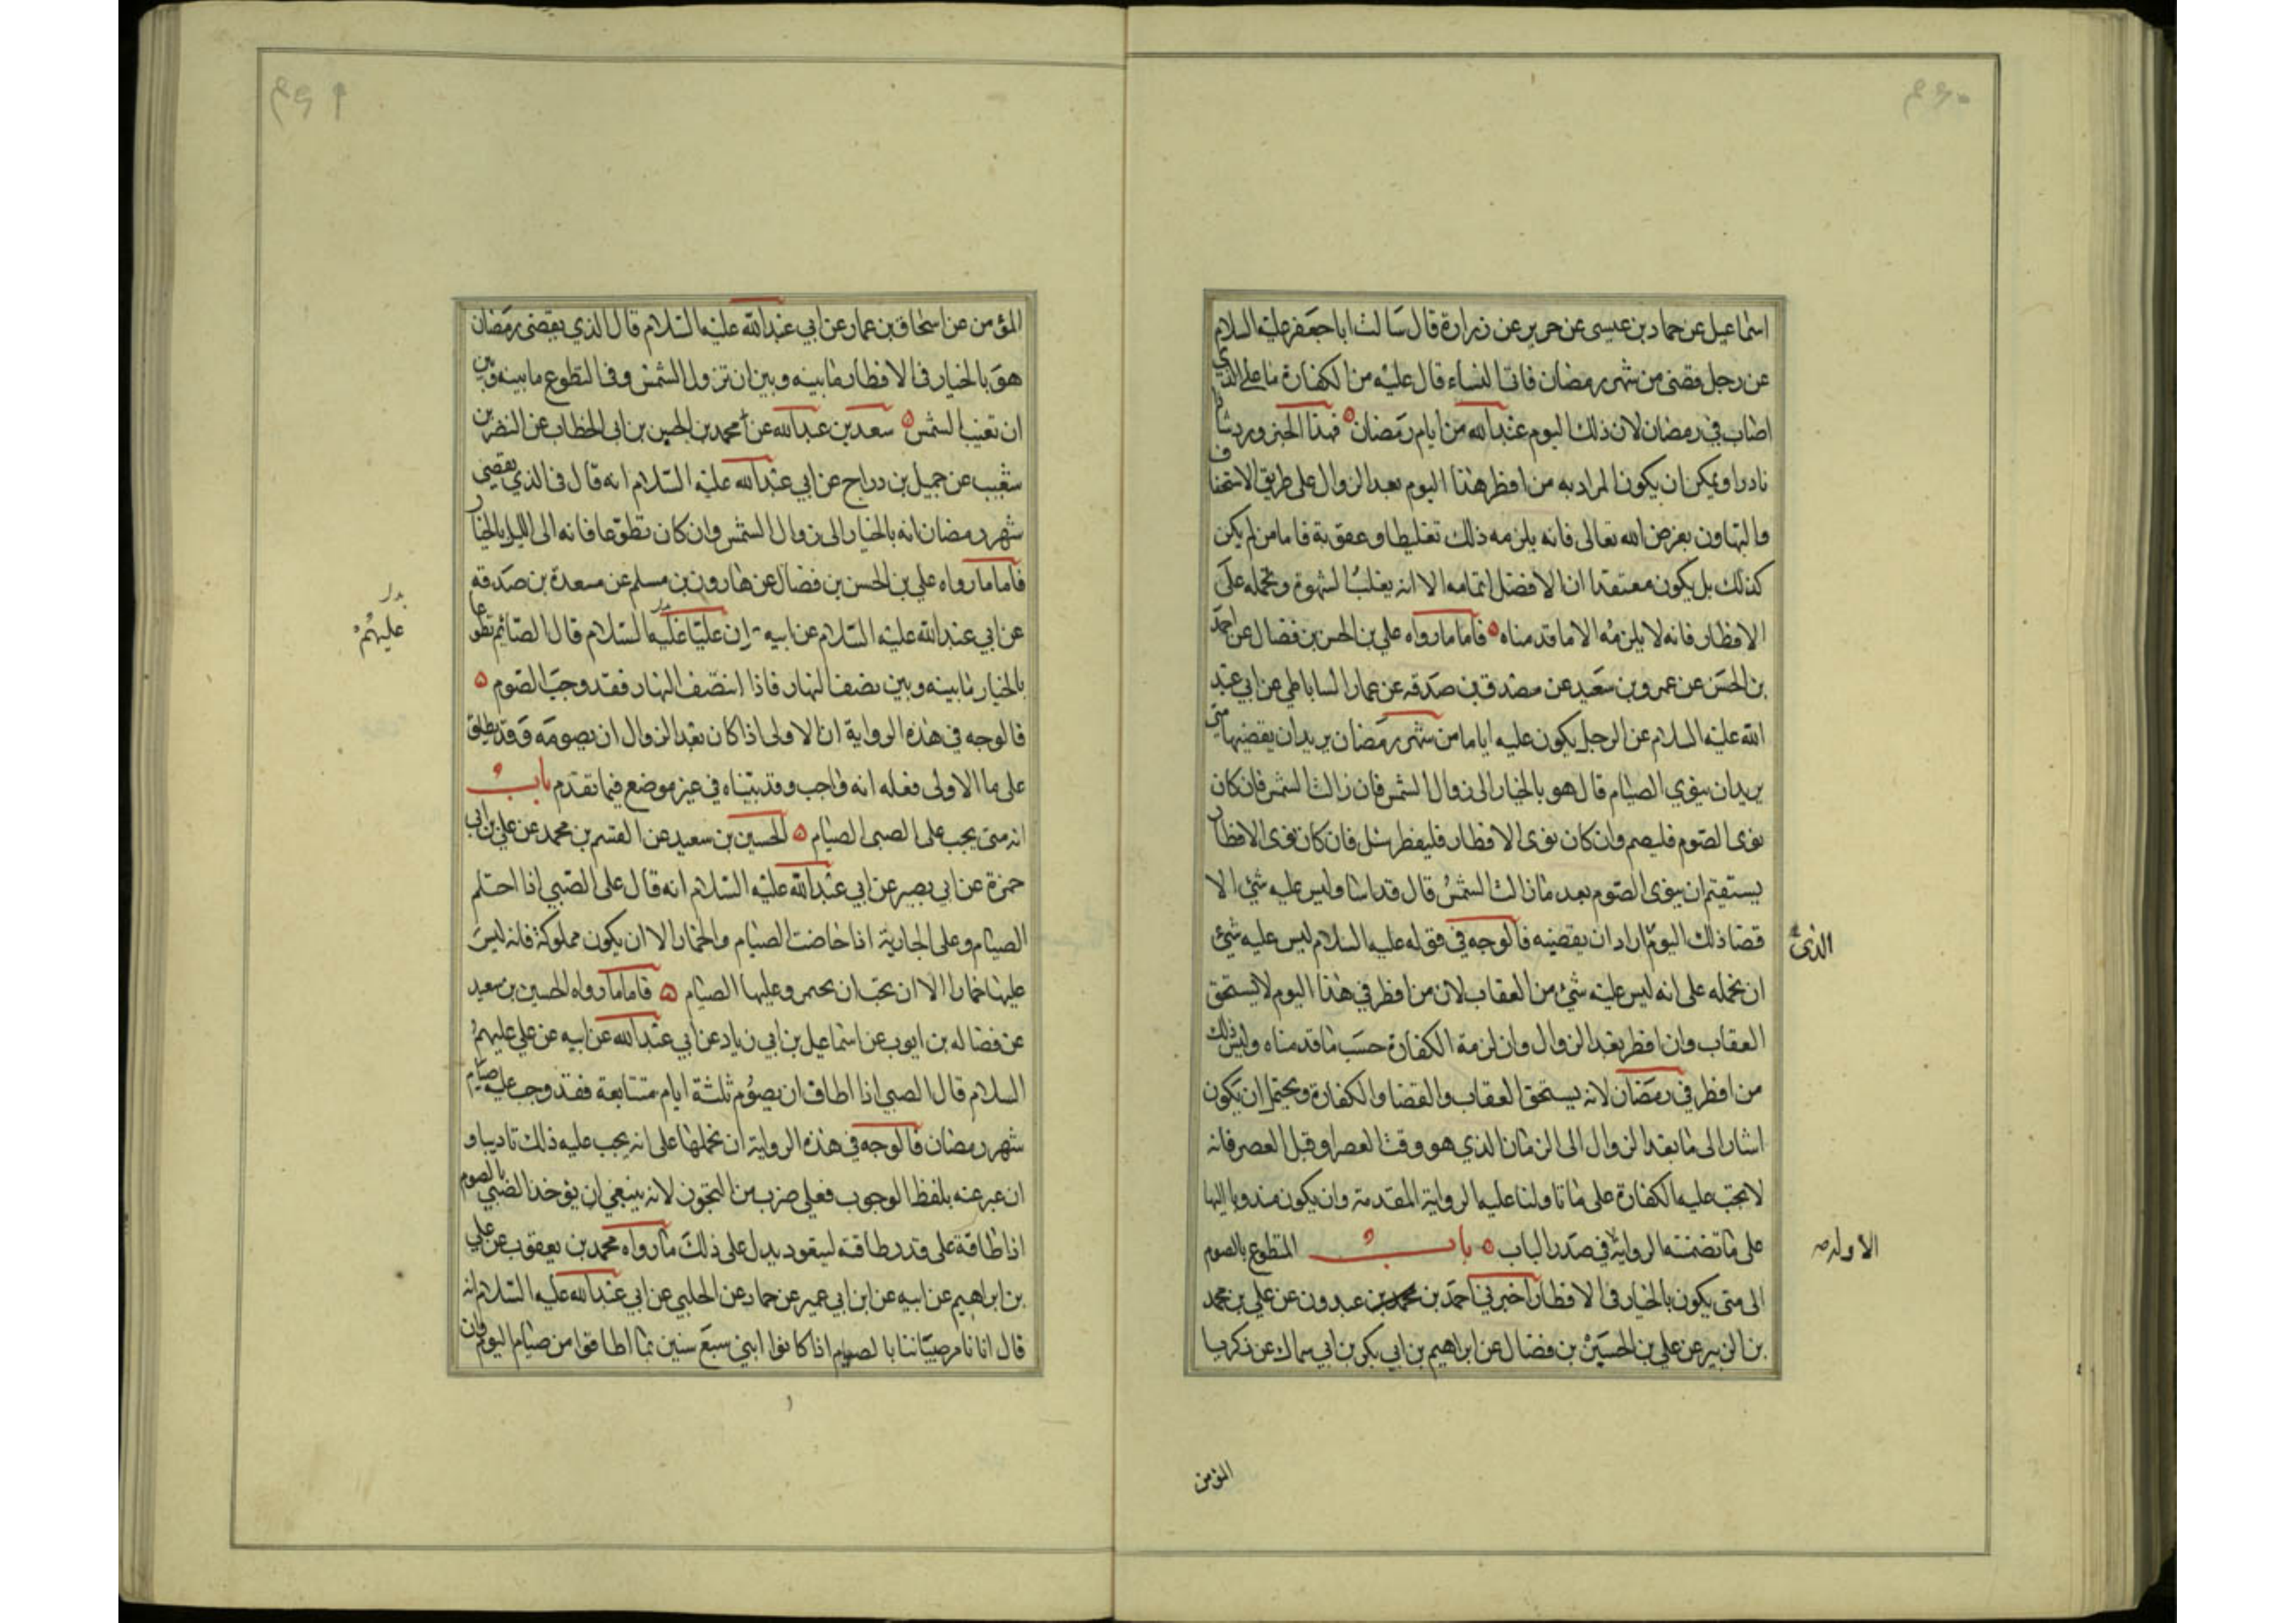 اسماعيل عن حماد بن عيسى عن حريز عن زرارة قال سالت ابا جعفر عليه السلام
عن رجل قضى من شهر رمضان فاتى النساء قال عليه من الكفارة ما على الذي
اصاب في رمضان لان ذلك اليوم عند الله من ايام رمضان فهذا الخبر ورد شاذا
نادرا ويمكن ان يكون المراد به من افطر هذا اليوم بعد الزوال على طريق الاستخفاف
والتهاون بفرض الله تعالى فانه يلزمه ذلك تغليظا وعقوبة فاما من لم يكن
كذلك بل يكون معتقدا ان الافضل اتمامه الا انه يغلب الشهوة وتحمله على
الافطار فانه لا يلزمه الا ما قدمناه فاما ما رواه علي بن الحسن بن فضال عن احمد
بن الحسن عن عمرو بن سعيد عن مصدق بن صدقه عن عمار الساباطي عن ابي عبد
الله عليه السلام عن الرجل يكون عليه اياما من شهر رمضان يريد ان يقضيها متى
يريد ان ينوي الصيام قال هو بالخيار الى زوال الشمس فان زالت الشمس فان كان
نوى الصوم فليصم وان كان نوى الافطار فليفطر سئل فان كان نوى الافطار
يستقيم ان ينوى الصوم بعد ما زالت الشمس قال قد اسا وليس عليه شئ الا
قضا ذلك اليوم اراد ان يقضيه فالوجه في قوله عليه السلام ليس عليه شئ
الذى
ان نحمله على انه ليس عليه شئ من العقاب لان من افطر في هذا اليوم لا يستحق
العقاب وان افطر بعد الزوال وان لزمة الكفارة حسب ما قدمناه وليس كذلك
من افطر في رمضان لانه يستحق العقاب والقضا والكفارة ويحتمل ان يكون
اشار الى ما بعد الزوال الى الزمان الذي هو وقت العصر او قبل العصر فانه
لا يجب عليه الكفارة على ما تاولنا عليه الرواية المقدمة وان يكون مندوبا اليها
على ما تضمنته الرواية في صدر الباب باب المتطوع بالصوم
الاوله
الى متى يكون بالخيار في الافطار اخبرني احمد بن محمد بن عبدون عن علي بن محمد
بن الزبير عن علي بن الحسين بن فضال عن ابراهيم بن ابي بكر بن ابي سماك عن زكريا
المؤمن
المؤمن عن اسحاق بن عمار عن ابي عبد الله عليه السلام قال الذي يقضى رمضان
هو بالخيار في الافطار ما بينه وبين ان تزول الشمس وفي التطوع ما بينه وبين
ان تغيب الشمس سعد بن عبد الله عن محمد بن الحسين بن ابى الخطاب عن النضر بن
شعيب عن جميل بن دراج عن ابي عبد الله عليه السلام انه قال في الذي يقضي
شهر رمضان انه بالخيار الى زوال الشمس وان كان تطوعا فانه الى الليل بالخيار
فاما ما رواه علي بن الحسن بن فضال عن هارون بن مسلم عن مسعدة بن صدقه
عن ابي عبد الله عليه السلام عن ابيه ان عليا عليه السلام قال الصائم تطوعا
عليهم
بالخيار ما بينه وبين نصف النهار فاذا انتصف النهار فقد وجب الصوم
فالوجه في هذه الرواية ان الاولى اذا كان بعد الزوال ان يصومه وقد يطلق
على ما الاولى فعله انه واجب وقد بيناه في غير موضع فيما تقدم باب
انه متى يجب على الصبى الصيام الحسين بن سعيد عن القسم بن محمد عن علي بن ابي
حمزة عن ابي بصير عن ابي عبد الله عليه السلام انه قال على الصبي اذا احتلم
الصيام وعلى الجارية اذا حاضت الصيام والخمار الا ان يكون مملوكة فانه ليس
عليها خمار الا ان تحب ان تختمر وعليها الصيام فاما ما رواه الحسين بن سعيد
عن فضاله بن ايوب عن اسماعيل بن ابي زياد عن ابي عبد الله عن ابيه عن علي عليهم
السلام قال الصبي اذا اطاق ان يصوم ثلثة ايام متتابعة فقد وجب عليه صيام
شهر رمضان فالوجه في هذه الرواية ان نحملها على انه يجب عليه ذلك تاديبا و
ان عبر عنه بلفظ الوجوب فعلى ضرب من التجوز لانه ينبغي ان يؤخذ الصبي بالصوم
اذا طاقة على قدر طاقته ليتعود يدل على ذلك ما رواه محمد بن يعقوب عن علي
بن ابراهيم عن ابيه عن ابن ابي عمير عن حماد عن الحلبي عن ابي عبد الله عليه السلام انه
قال انا نامر صبياننا بالصيام اذا كانوا ابني سبع سنين بما اطاقوا من صيام اليوم وان